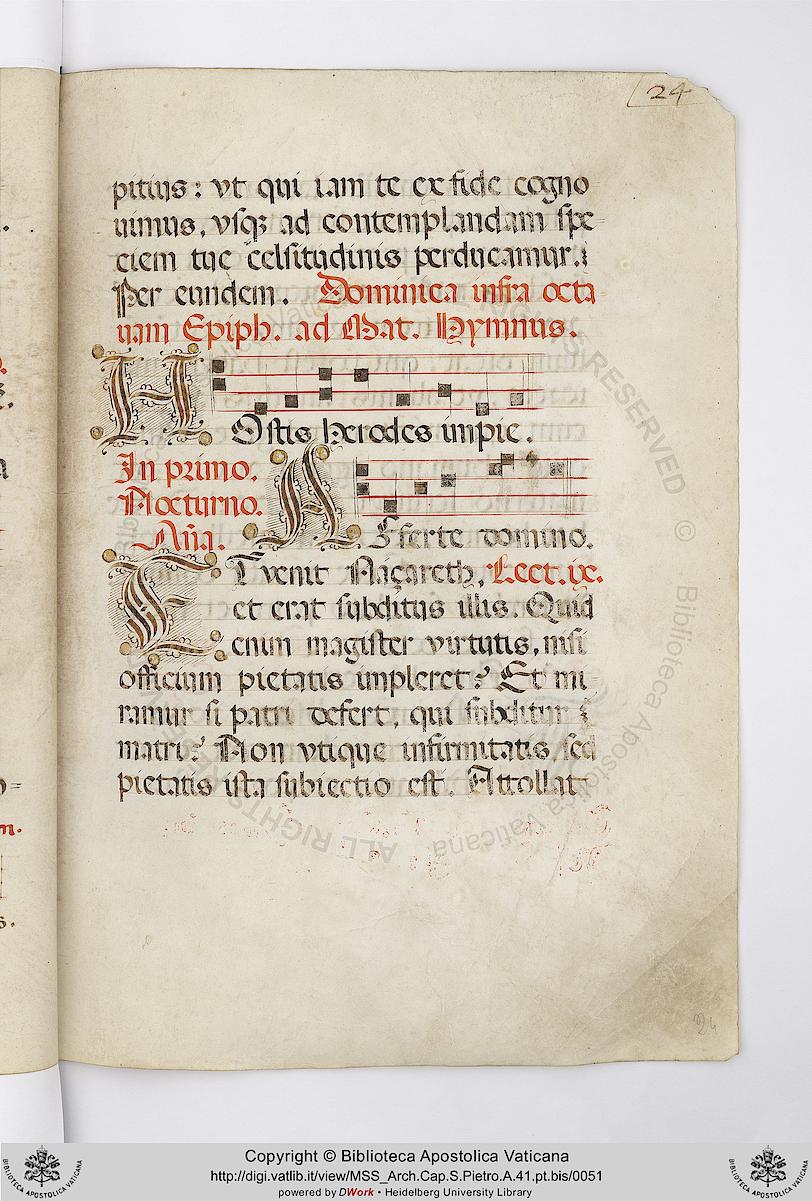 24
pitius: vt qui iam te ex fide cogno
uimus, vsq; ad contemplandam spe=
ciem tue celsitudinis perducamur.
Per eundem. Dominica infra octa
uam Epiph. ad Mat. Hymnus.
HOstis herodes impie.
In primo.
Nocturno.
Aña.
AFferte domino.
ET venit Naçareth, Lect. ix.
et erat subditus illis. Quid
enim magister virtutis, nisi
officium pietatis impleret? Et mi
ramur si patri defert, qui subditur
matri? Non vtique infirmitatis, sed
pietatis ista subiectio est. Attollat
24
ALL RIGHTS RESERVED © Biblioteca Apostolica Vaticana
Copyright © Biblioteca Apostolica Vaticana
http://digi.vatlib.it/view/MSS_Arch.Cap.S.Pietro.A.41.pt.bis/0051
powered by DWork • Heidelberg University Library
BIBLIOTECA APOSTOLICA VATICANA
BIBLIOTECA APOSTOLICA VATICANA